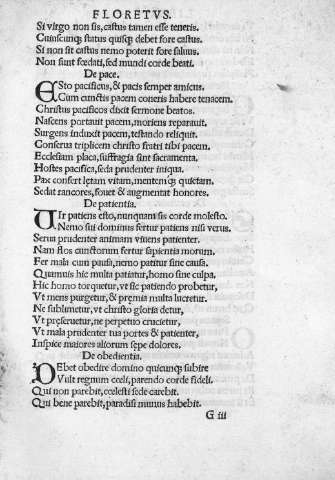 FLORETVS.
Si virgo non sis, castus tamen esse teneris.
Cuiuscunqs status quisqs debet fore castus.
Si non sit castus nemo poterit fore saluus.
Non sunt fœdati, sed mundi corde beati.
De pace.
ESto pacificus, & pacis semper amicus.
Cum cunctis pacem coneris habere tenacem.
Christus pacificos dixit sermone beatos.
Nascens portauit pacem, moriens reparauit.
Surgens induxit pacem, testando reliquit.
Conserua triplicem christo fratri tibi pacem.
Ecclesiam placa, suffragia sint sacramenta.
Hostes pacifica, seda prudenter iniqua.
Pax confert lętam vitam, mentemqs quietam.
Sedat rancores, fouet & augmentat honores.
De patientia.
VIr patiens esto, nunquam sis corde molesto.
Nemo sui dominus fertur patiens nisi verus.
Serua prudenter animam viuens patienter.
Nam flos cunctorum fertur sapientia morum.
Fer mala cum pausa, nemo patitur sine causa.
Quamuis hic multa patiatur, homo sine culpa,
Hic homo torquetur, vt sic patiendo probetur,
Vt mens purgetur, & pręmia multa lucretur.
Ne sublimetur, vt christo gloria detur,
Vt pręseruetur, ne perpetuo crucietur,
Vt mala prudenter tua portes & patienter,
Inspice maiores aliorum sępe dolores.
De obedientia.
DEbet obedire domino quicunqs subire
Vult regnum cœli, parendo corde fideli.
Qui non parebit, cœlesti sede carebit.
Qui bene parebit, paradisi munus habebit.
G iii